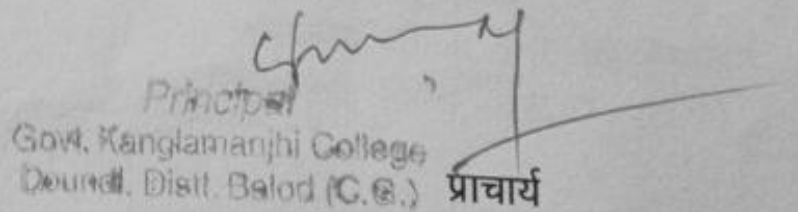 Principal
Govt. Kanglamanjhi College
Doundi. Distt. Balod (C.G.) प्राचार्य